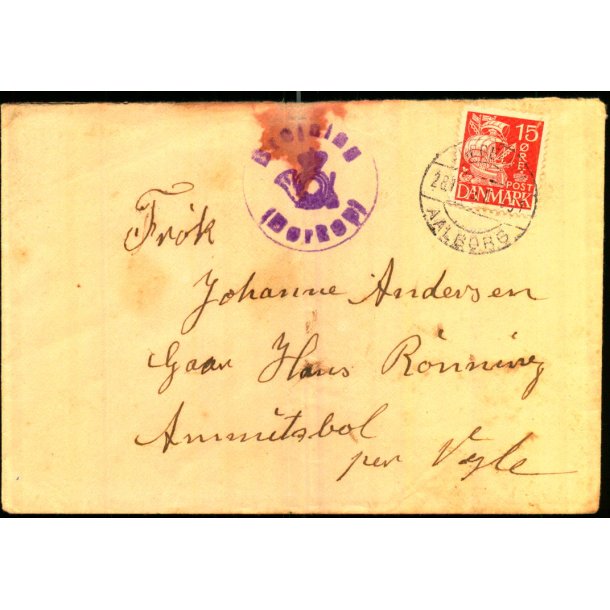 Brejning
(Børkop)
15
ØRE
POST
DANMARK
AALBORG
Frøk
Johanne Andersen
Gaar Hans Rønning
Ammitsbol
per Vejle